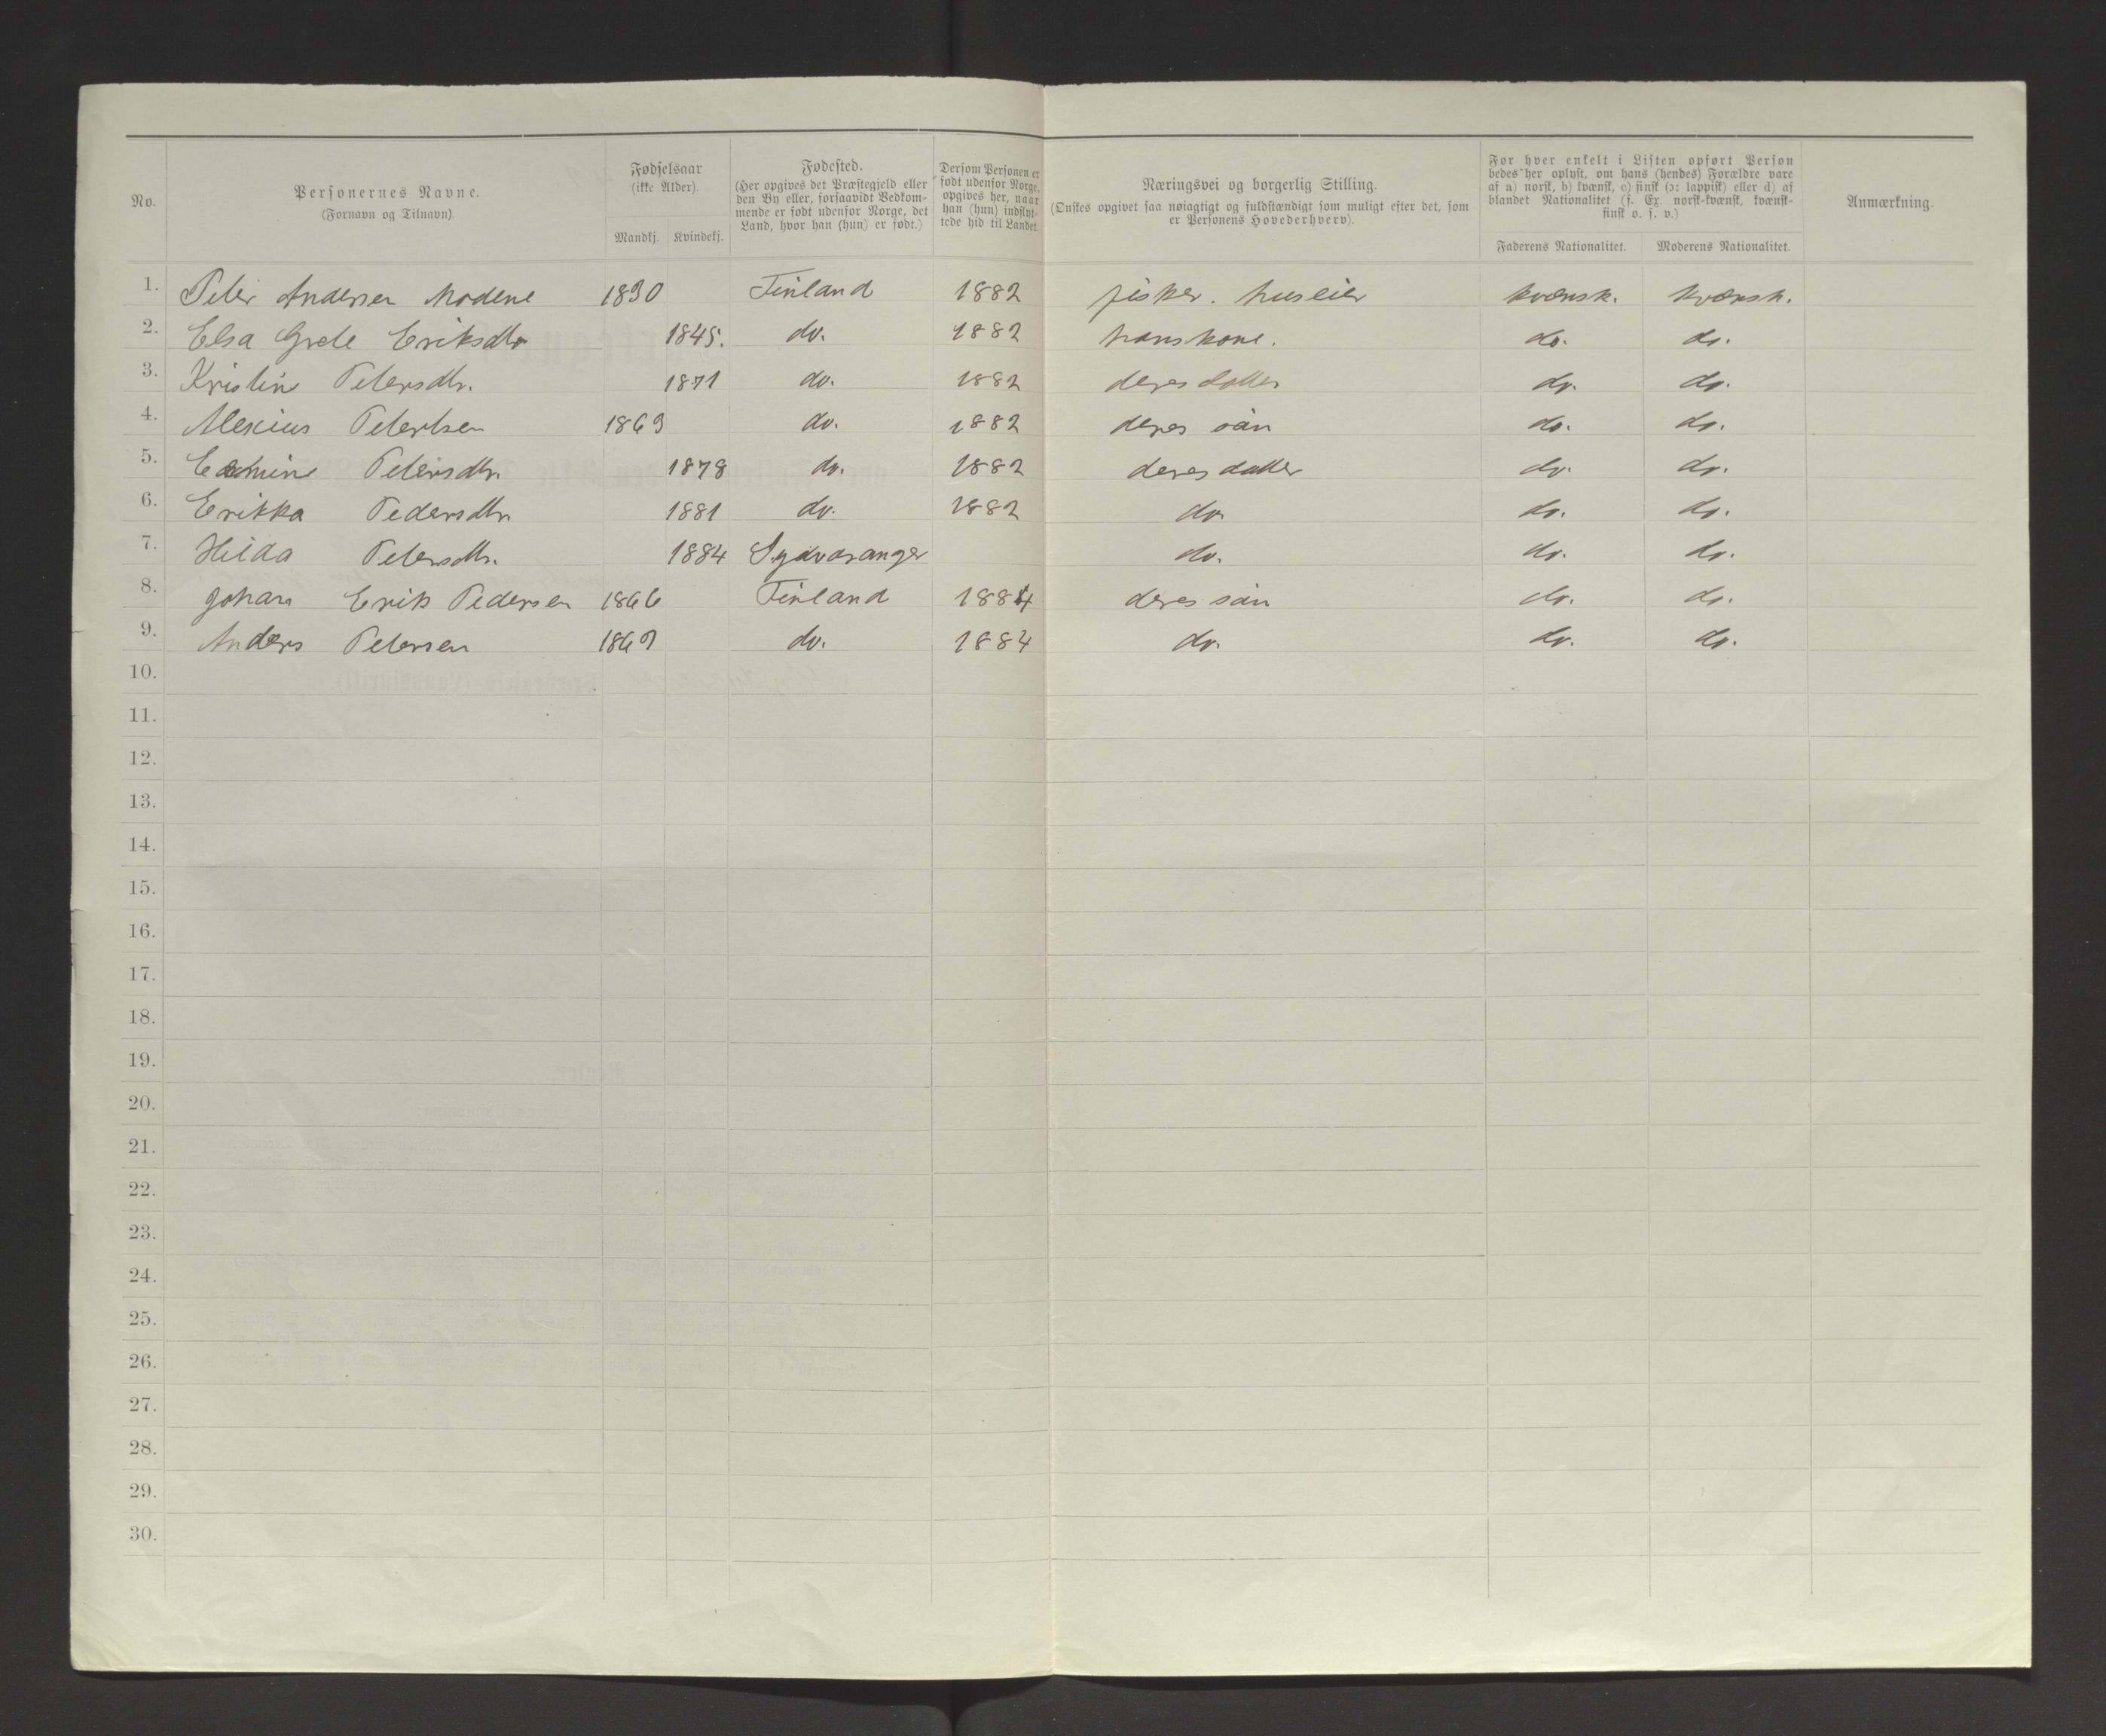 No.
Personernes Navne.
(Fornavn og Tilnavn)
Fødselsaar
(ikke Alder).
Mandkj. Kvindekj.
Fødested.
(Her opgives det Præstegjeld eller
den By eller, forsaavidt Vedkom-
mende er født udenfor Norge, det
Land, hvor han (hun) er født.)
Dersom Personen er
født udenfor Norge,
opgives her, naar
han (hun) indflyt-
tede hid til Landet.
Næringsvei og borgerlig Stilling.
(Ønskes opgivet saa nøiagtigt og fuldstændigt som muligt efter det, som
er Personens Hovederhverv).
For hver enkelt i Listen opført Person
bedes her oplyst, om hans (hendes) Forældre vare
af a) norsk, b) kvænsk, c) finsk (ɔ: lappisk) eller d) af
blandet Nationalitet (f. Ex. norsk-kvænsk, kvænsk-
finsk o. s. v.)
Faderens Nationalitet. Moderens Nationalitet.
Anmærkning.
1. Peter Andersen 1830 Finland 1882 fisker. huseier kvænsk. kvænsk.
2. Elsa Grete Eriksdtr 1845. do. 1882 hans kone. do. do.
3. Kristine Petersdtr. 1871 do. 1882 deres datter do. do.
4. Petersen 1869 do. 1882 deres sön do. do.
5. Petersdtr. 1878 do. 1882 deres datter do. do.
6. Erikka Pedersdtr. 1881 do. 1882 do. do. do.
7. Hilda Petersdtr. 1884 Sydvaranger do. do. do.
8. Johan Erik Pedersen 1866 Finland 1884 deres sön do. do.
9. Anders Petersen do. 1884 do. do. do.
10.
11.
12.
13.
14.
15.
16.
17.
18.
19.
20.
21.
22.
23.
24.
25.
26.
27.
28.
29.
30.